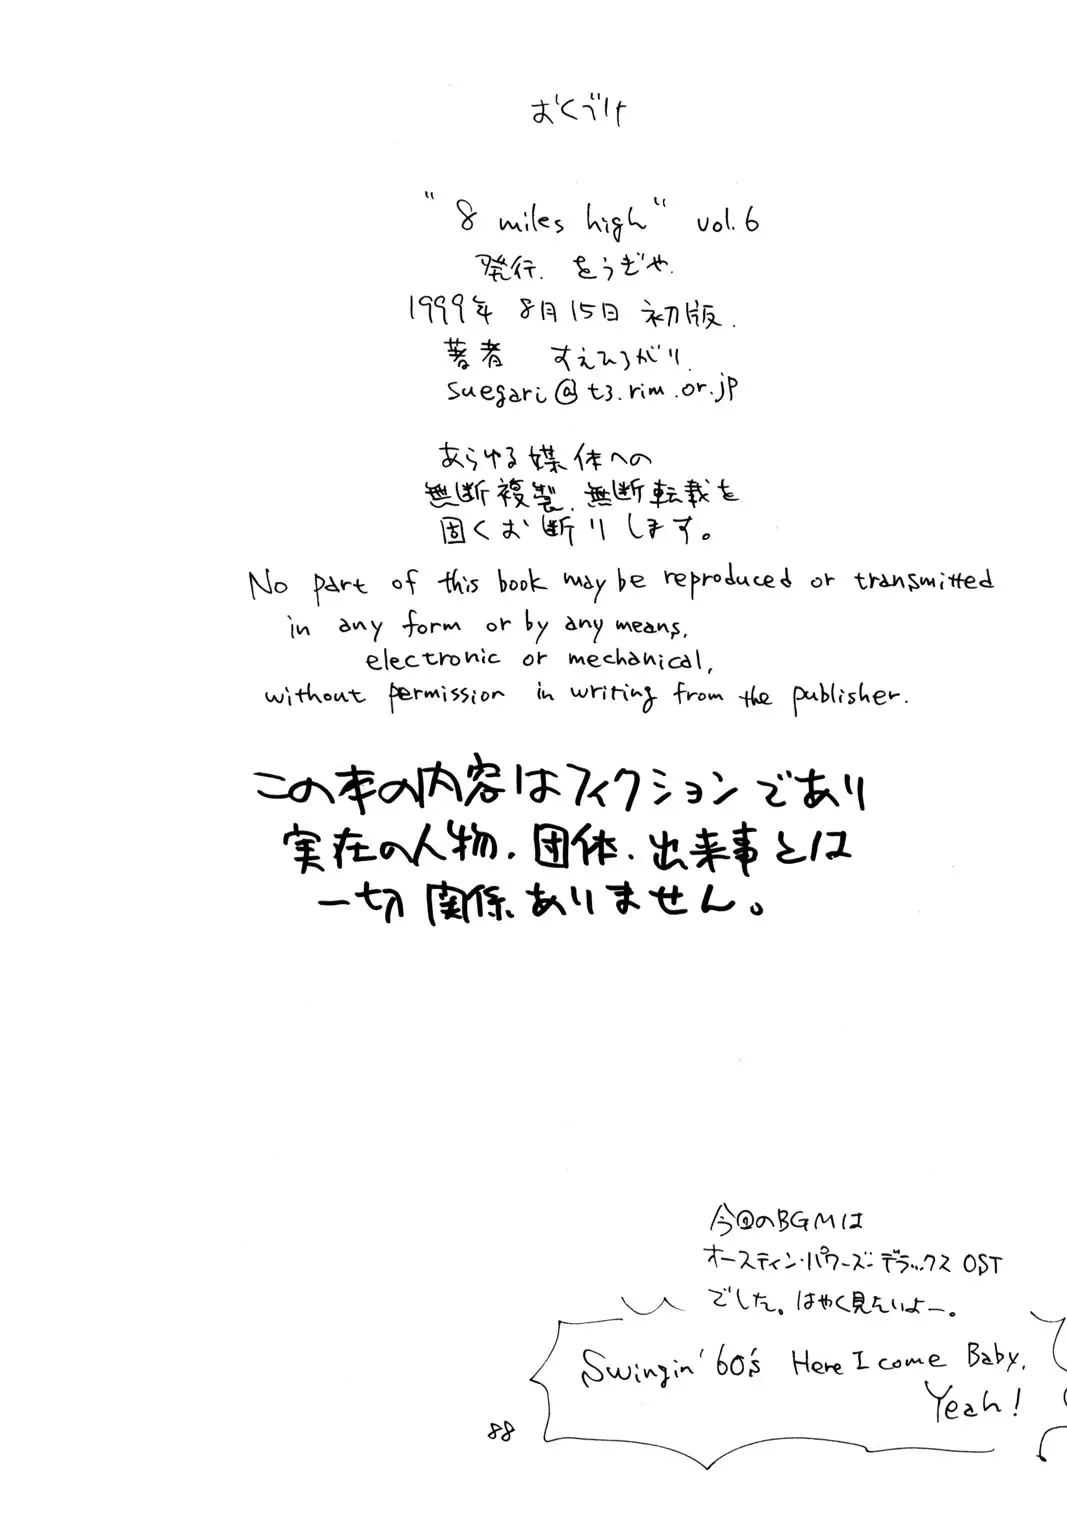 おくづけ
"8 miles high" vol.6
発行. をうぎや.
1999年 8月15日 初版.
著者 すえひろがり.
suegari@t3.rim.or.jp
あらゆる媒体への
無断複製、無断転載を
固くお断りします。
No part of this book may be reproduced or transmitted
in any form or by any means,
electronic or mechanical,
without permission in writing from the publisher.
この本の内容はフィクションであり
実在の人物、団体、出来事とは
一切関係ありません。
今回のBGMは
オースティン・パワーズ:デラックス OST
でした。はやく見たいよー。
Swingin' 60's Here I come Baby.
Yeah!
88